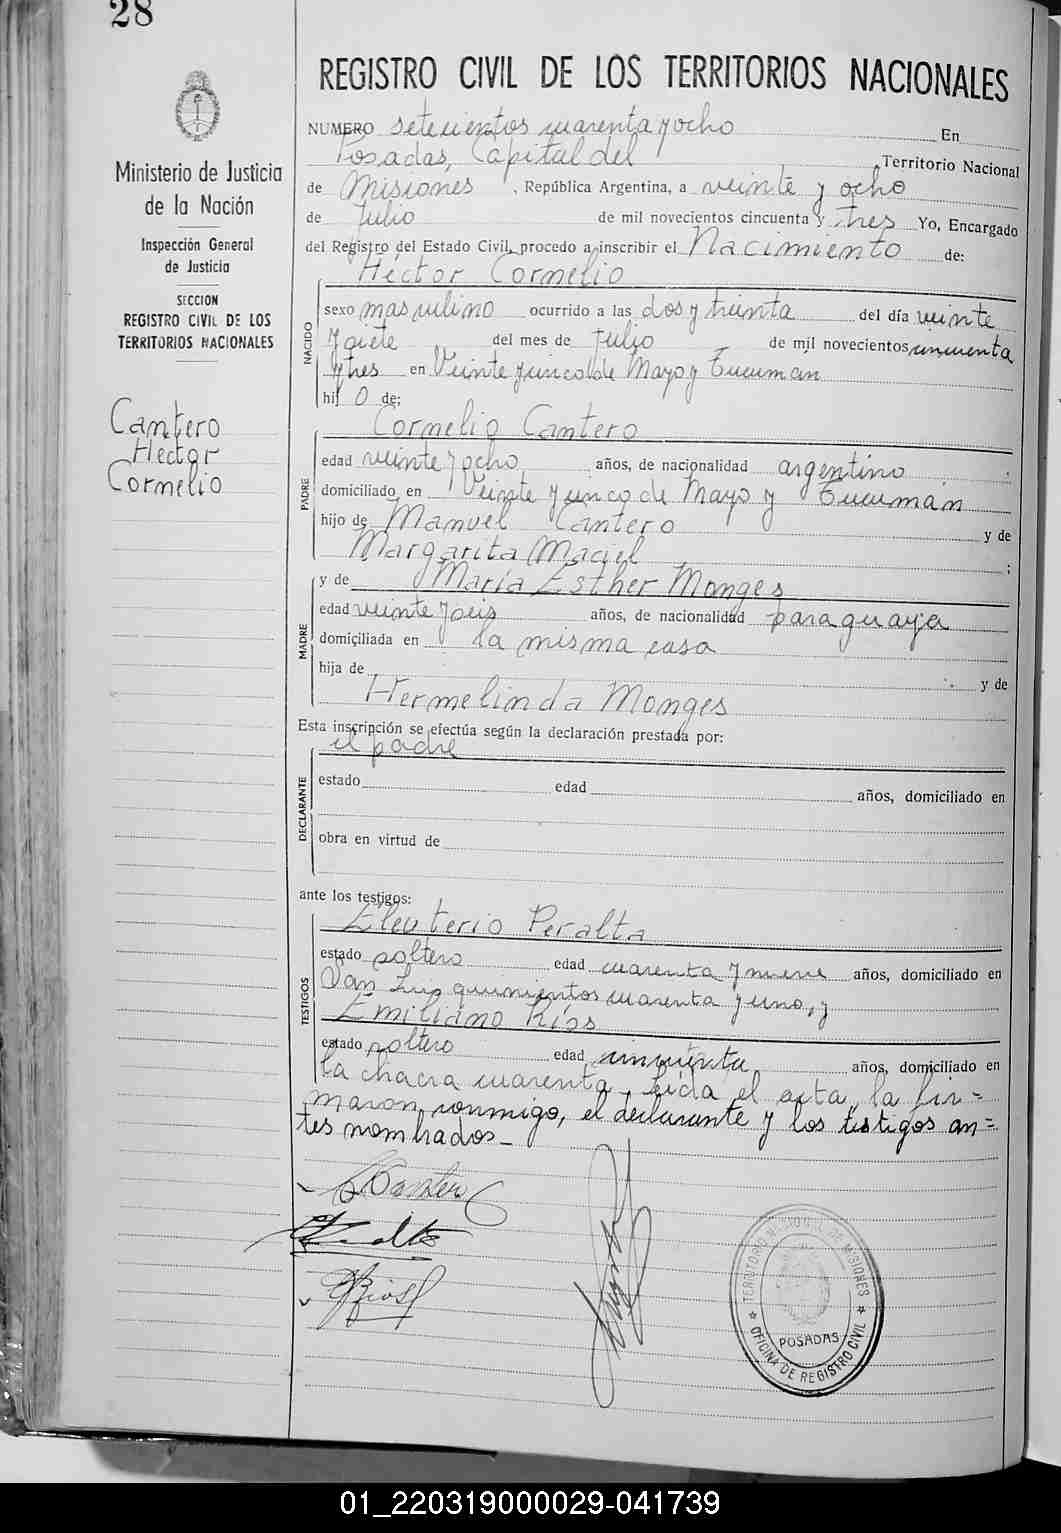 28
REGISTRO CIVIL DE LOS TERRITORIOS NACIONALES
Ministerio de Justicia
de la Nación
Inspección General
de Justicia
SECCION
REGISTRO CIVIL DE LOS
TERRITORIOS NACIONALES
Cantero
Hector
Cornelio
NUMERO setecientos cuarenta y ocho En
Posadas, Capital del Territorio Nacional
de Misiones, República Argentina, a veinte y ocho
de Julio de mil novecientos cincuenta y tres Yo, Encargado
del Registro del Estado Civil, procedo a inscribir el Nacimiento de:
Héctor Cornelio
NACIDO
sexo masculino ocurrido a las dos y treinta del día veinte
y siete del mes de Julio de mil novecientos cincuenta
y tres en Veinte y cinco de Mayo y Tucumán
hij o de:
Cornelio Cantero
PADRE
edad veinte y ocho años, de nacionalidad argentino ;
domiciliado en Veinte y cinco de Mayo y Tucumán
hijo de Manuel Cantero y de
Margarita Maciel ;
y de María Esther Monges
MADRE
edad veinte y seis años, de nacionalidad paraguaya
domiciliada en la misma casa
hija de y de
Hermelinda Monges
Esta inscripción se efectúa según la declaración prestada por:
el padre
DECLARANTE
estado edad años, domiciliado en
obra en virtud de
ante los testigos:
Eleuterio Peralta
TESTIGOS
estado soltero edad cuarenta y nueve años, domiciliado en
San Luis quinientos cuarenta y uno, y
Emiliano Ríos
estado soltero edad cincuenta años, domiciliado en
la chacra cuarenta. Leída el acta, la fir=
maron conmigo, el declarante y los testigos an=
tes nombrados_
TERRITORIO NACIONAL DE MISIONES
POSADAS
OFICINA DE REGISTRO CIVIL
01_220319000029-041739